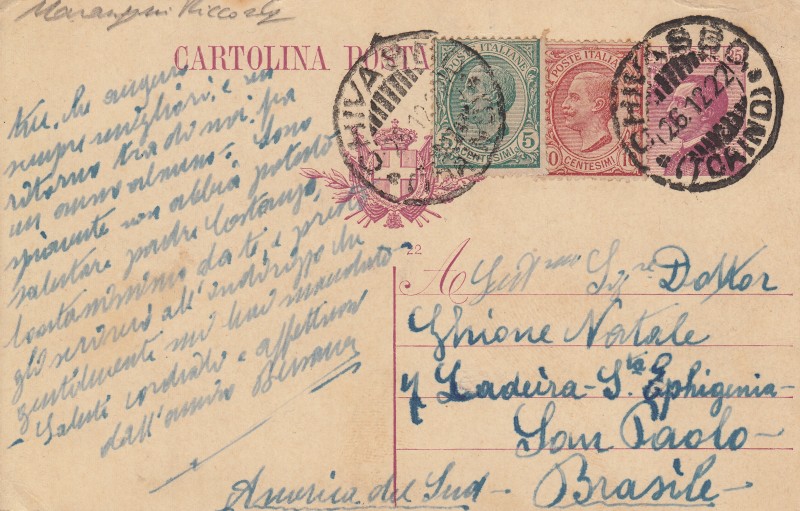 CARTOLINA POSTA
POSTE ITALIANE
5 5
CENTESIMI
POSTE ITALIANE
10 10
CENTESIMI
25
CHIVASSO
26.12.22
(TORINO)
22
sempre migliori, e un
ritorno tra di noi fra
un anno almeno. Sono
spiacente non abbia potuto
salutare padre Costanzo,
lontanissimo da te, e presto
gli scriverò all'indirizzo che
gentilmente mi hai mandato
Saluti cordiali e affettuosi
dall'amico
A Gent.mo Sig.re Dottor
Ghione Natale
7 Ladeira - S.ta Ephigenia -
San Paolo -
Brasile -
America del Sud -